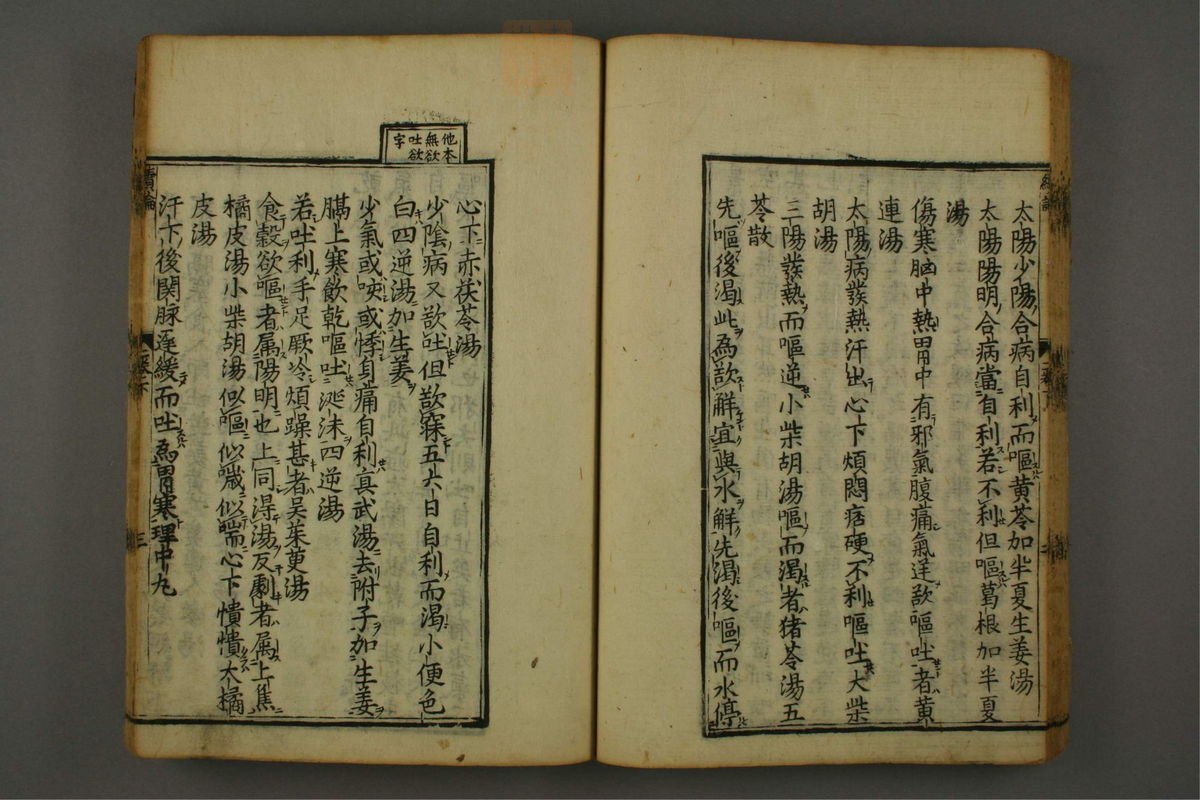 太陽少陽合病自利而嘔黄芩加半夏生姜湯
太陽陽明合病當自利若不利但嘔葛根加半夏
湯
傷寒胸中熱胃中有邪氣腹痛氣逆欲嘔吐者黄
連湯
太陽病發熱汗出心下煩悶痞硬不利嘔吐大柴
胡湯
三陽發熱而嘔逆小柴胡湯嘔而渴者猪苓湯五
苓散
先嘔後渴此為欲解宜與水解先渴後嘔而水停
他本
無欲
吐欲
字
心下赤茯苓湯
少陰病又欲吐但欲寐五六日自利而渴小便色
白四逆湯加生姜
少氣或咳或悸身痛自利真武湯去附子加生姜
膈上寒飲乾嘔吐涎沫四逆湯
若吐利手足厥冷煩躁甚者吴茱萸湯
食穀欲嘔者属陽明也上同得湯反劇者属上焦
橘皮湯小柴胡湯似嘔似噦似喘心下憒憒大橘
皮湯
汗下後関脉遅緩而吐為胃寒理中丸
三